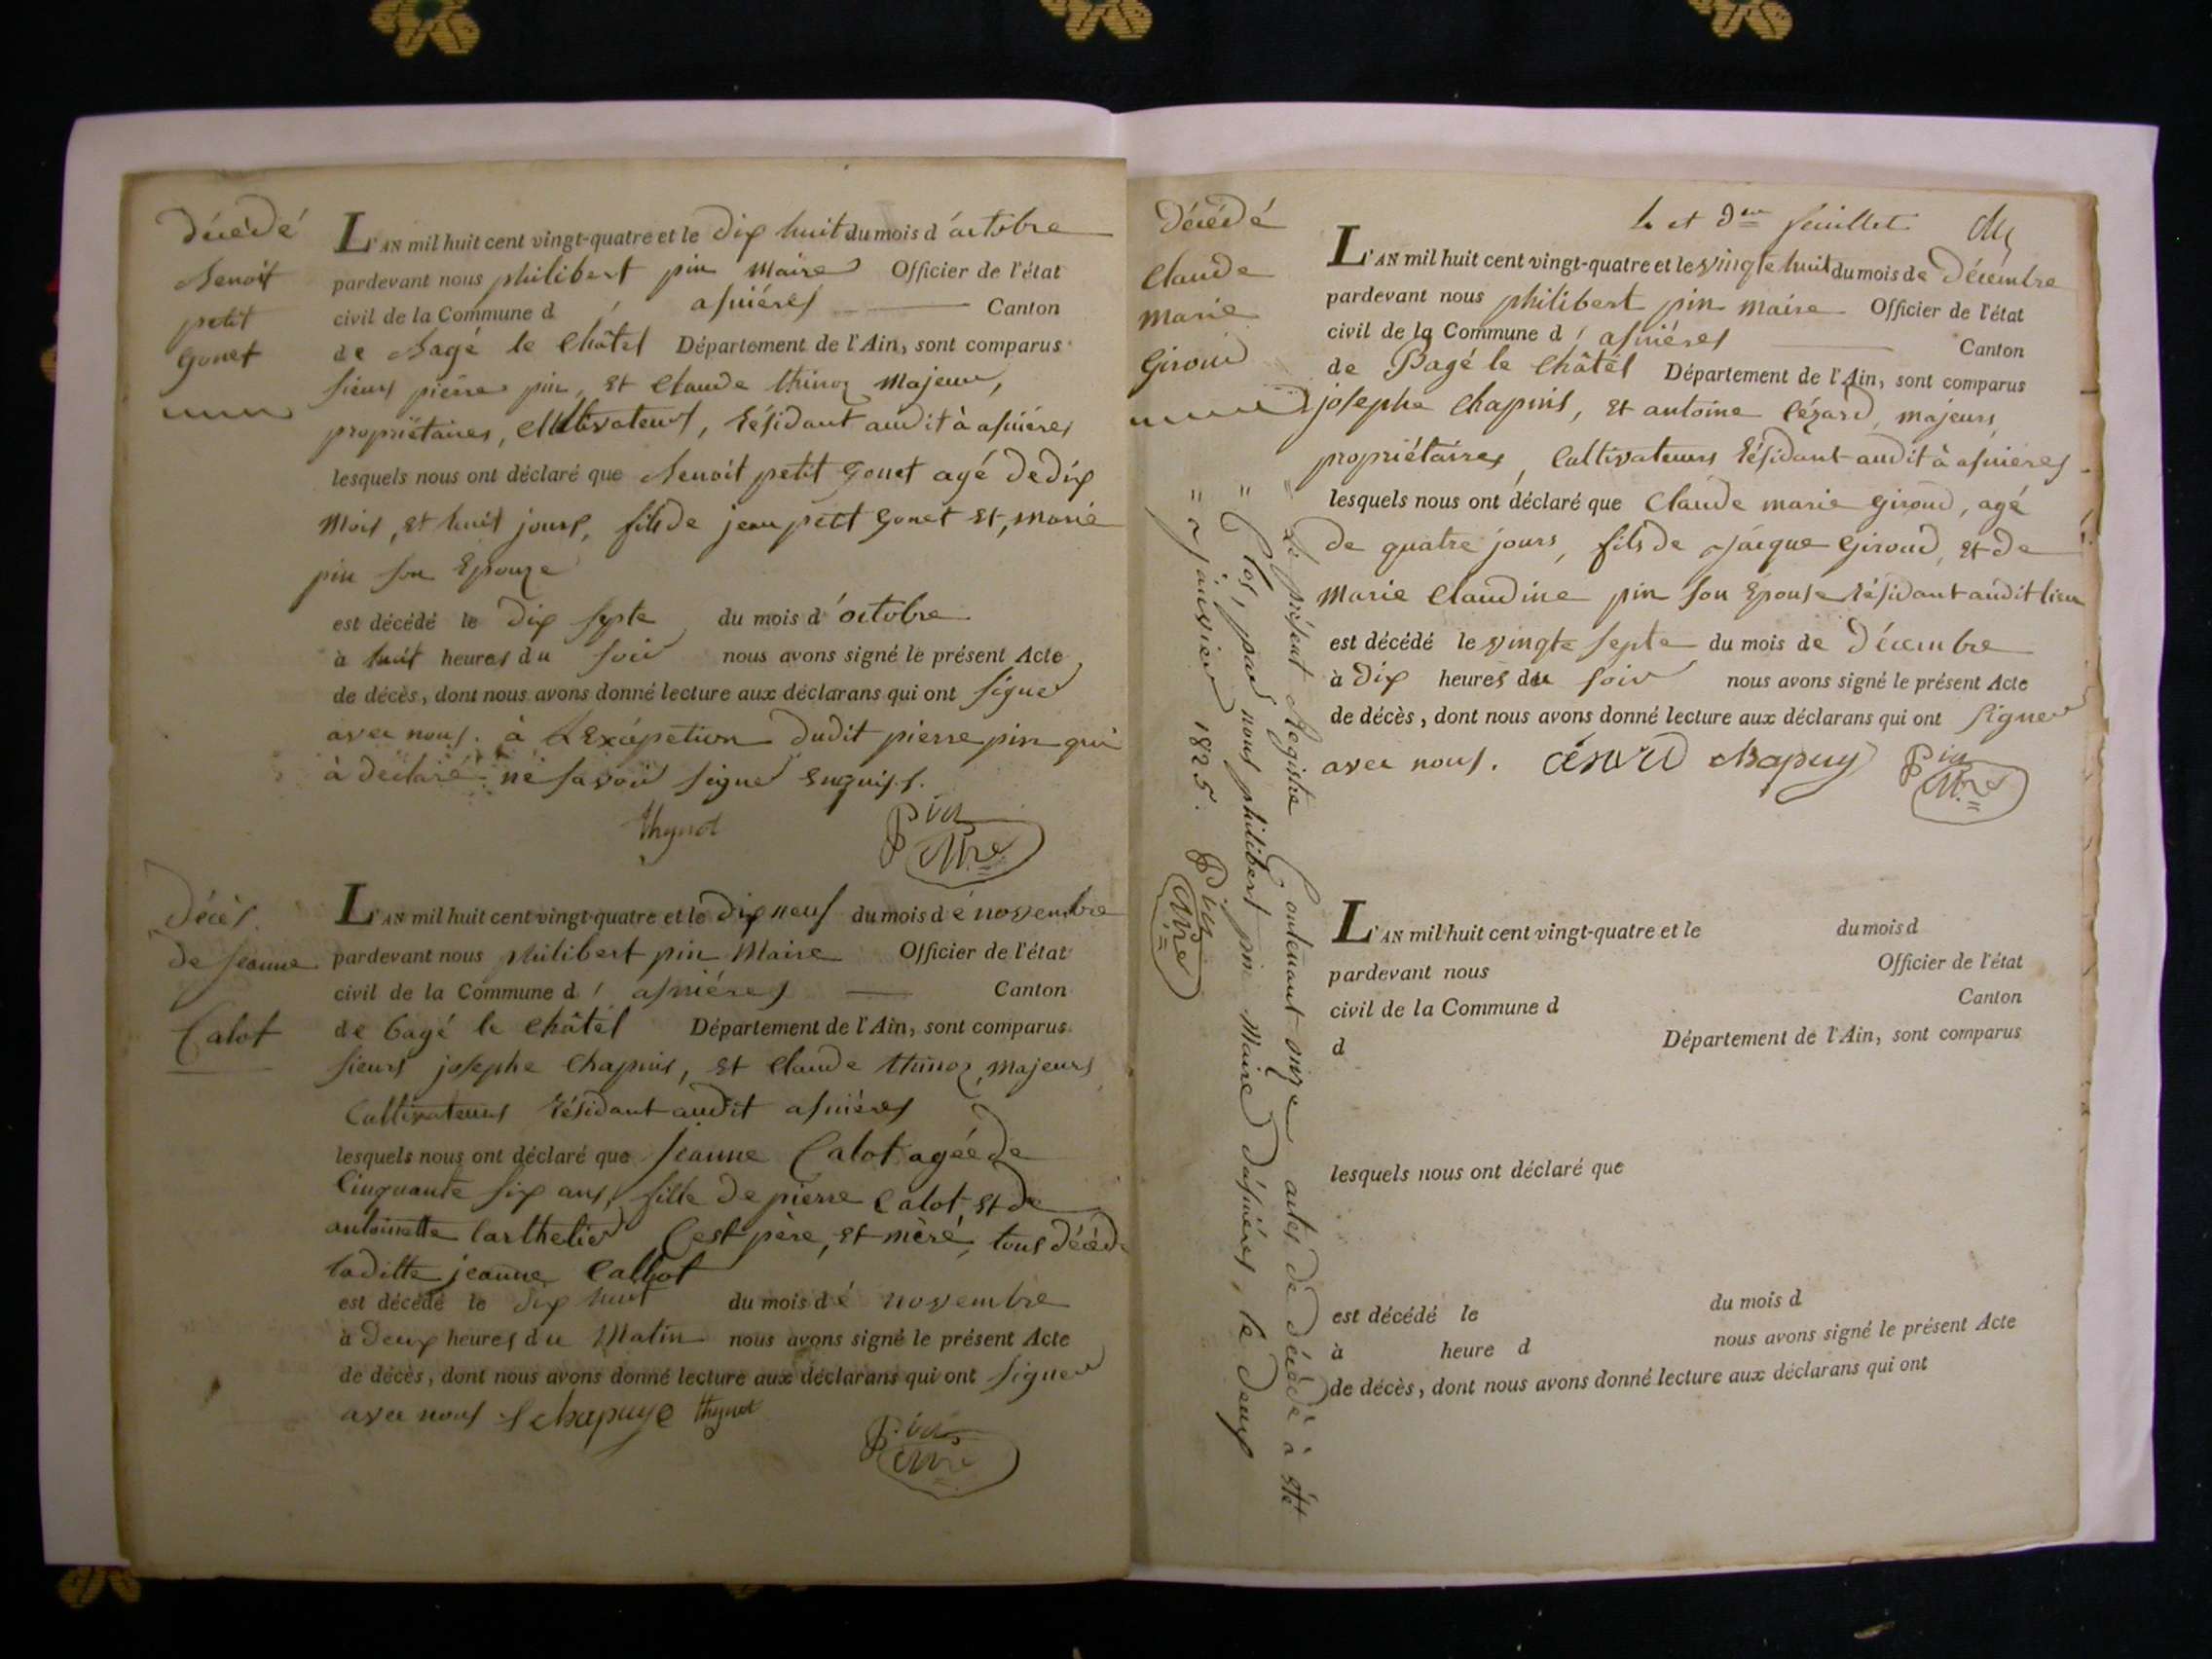 décédé
Benoit
petit
Gonet
L'AN mil huit cent vingt-quatre et le dix huit du mois d'octobre
pardevant nous philibert pin maire Officier de l'état
civil de la Commune d' asnières Canton
de Bagé le Châtel Département de l'Ain, sont comparus
sieurs pierre pin, et Claude thinoz majeurs,
propriétaires, cultivateurs, résidant audit à asnières
lesquels nous ont déclaré que Benoit petit Gonet agé de dix
mois, et huit jours, fils de jean petit Gonet et, marie
pin son Epouze
est décédé le dix septe du mois d'octobre
à huit heures du soir nous avons signé le présent Acte
de décès, dont nous avons donné lecture aux déclarans qui ont signer
avec nous. à dudit pierre pin qui
à déclaré ne savoir signer
thynot
Pin
Mre
Décès
de Jeanne
Calot
L'AN mil huit cent vingt-quatre et le dix neuf du mois dé novembre
pardevant nous philibert pin Maire Officier de l'état
civil de la Commune d' asnières Canton
de bagé le Châtel Département de l'Ain, sont comparus
sieurs josephe Chapuis, et Claude thinoz, majeurs
Cultivateurs résidant audit asnières
lesquels nous ont déclaré que Jeanne Calot agée de
Cinquante six ans, fille de pierre Calot, et de
antoinette Carthelier C'est père, et mèré, tous décédé
laditte jeanne Callot
est décédé le dix huit du mois dé novembre
à deux heures du Matin nous avons signé le présent Acte
de décès, dont nous avons donné lecture aux déclarans qui ont signer
avec nous chapuys thynot
Pin
Mre
4 et dier feuillet
décédé
Claude
marie
Giroud
L'AN mil huit cent vingt-quatre et le vingte huit du mois de décembre
pardevant nous philibert pin maire Officier de l'état
civil de la Commune d' asnières Canton
de Bagé le Châtel Département de l'Ain, sont comparus
josephe Chapuis, et antoine Cézard, majeurs,
propriétaires, Cultivateurs résidant audit à asnières
lesquels nous ont déclaré que Claude marie Giroud, agé
de quatre jours, fils de Jacque Giroud, et de
Marie Claudine pin son Epouse résidant audit lieu
est décédé le vingte septe du mois de décembre
à dix heures du soir nous avons signé le présent Acte
de décès, dont nous avons donné lecture aux déclarans qui ont signer
avec nous. césard chapuy Pin
Mre
= Le présent Registre Contenant onze actes dé décédé à été
= Clos, par nous philibert pin Maire d'asnières, le deux
= janvier 1825. Pin
Mre
L'AN mil huit cent vingt-quatre et le du mois d
pardevant nous Officier de l'état
civil de la Commune d Canton
d Département de l'Ain, sont comparus
lesquels nous ont déclaré que
est décédé le du mois d
à heure d nous avons signé le présent Acte
de décès, dont nous avons donné lecture aux déclarans qui ont